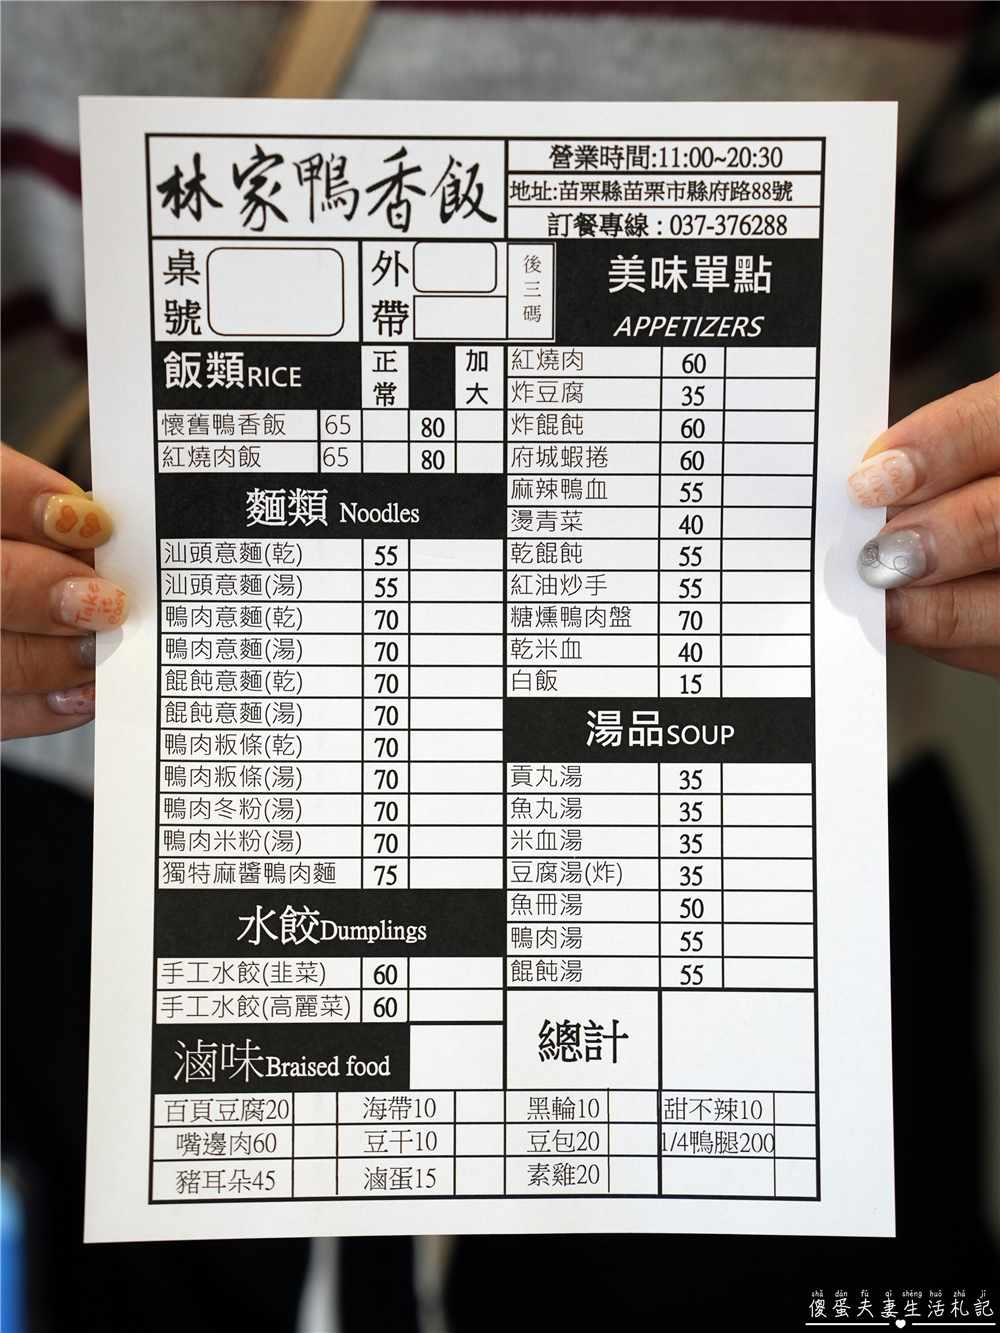 林家鴨香飯
營業時間:11:00~20:30
地址:苗栗縣苗栗市縣府路88號
訂餐專線:037-376288
桌號
外帶
後三碼
飯類RICE 正常 加大
懷舊鴨香飯 65 80
紅燒肉飯 65 80
麵類 Noodles
汕頭意麵(乾) 55
汕頭意麵(湯) 55
鴨肉意麵(乾) 70
鴨肉意麵(湯) 70
餛飩意麵(乾) 70
餛飩意麵(湯) 70
鴨肉粄條(乾) 70
鴨肉粄條(湯) 70
鴨肉冬粉(湯) 70
鴨肉米粉(湯) 70
獨特麻醬鴨肉麵 75
水餃Dumplings
手工水餃(韭菜) 60
手工水餃(高麗菜) 60
美味單點
APPETIZERS
紅燒肉 60
炸豆腐 35
炸餛飩 60
府城蝦捲 60
麻辣鴨血 55
燙青菜 40
乾餛飩 55
紅油炒手 55
糖燻鴨肉盤 70
乾米血 40
白飯 15
湯品SOUP
貢丸湯 35
魚丸湯 35
米血湯 35
豆腐湯(炸) 35
魚冊湯 50
鴨肉湯 55
餛飩湯 55
總計
滷味Braised food
百頁豆腐20 海帶10 黑輪10 甜不辣10
嘴邊肉60 豆干10 豆包20 1/4鴨腿200
豬耳朵45 滷蛋15 素雞20
LOVE LOVE LOVE
Take it easy
shǎ dàn fū qī shēng huó zhá jì
傻蛋夫妻生活札記